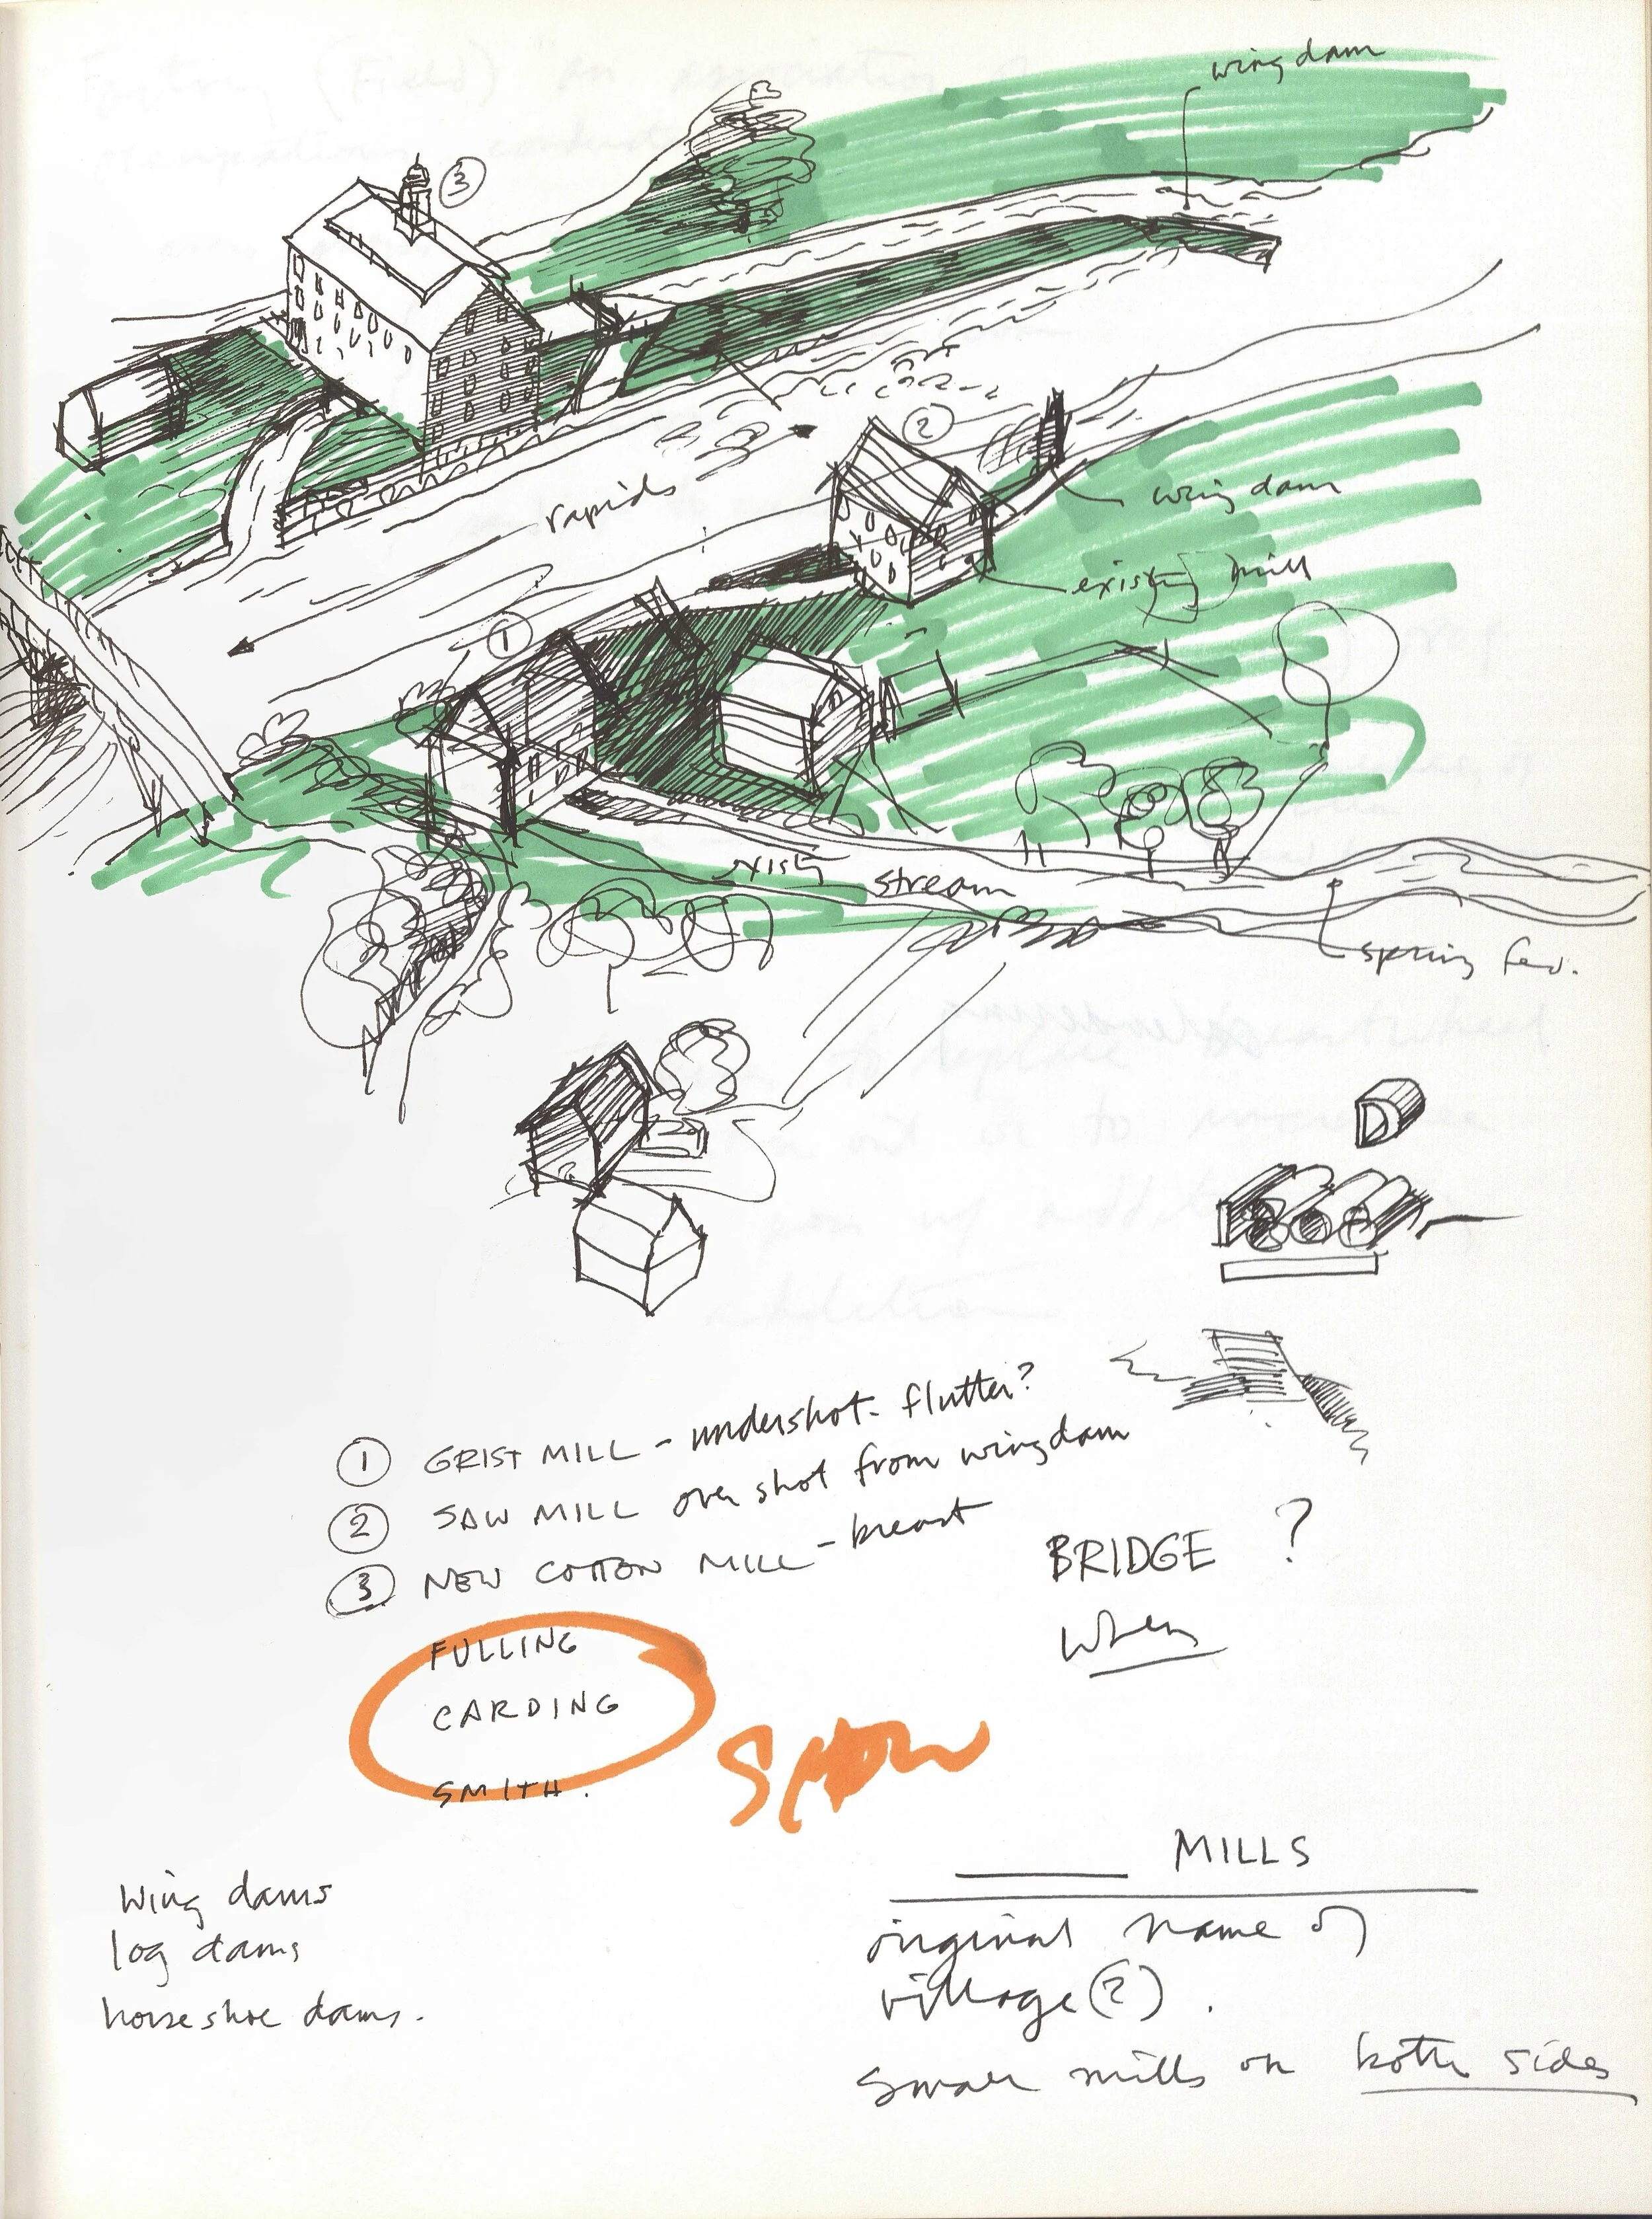 wing dam
3
2
rapids
wing dam
existg mill
1
existg stream
spring fed.
1 GRIST MILL - undershot - flutter?
2 SAW MILL over shot from wingdam
3 NEW COTTON MILL - breast
BRIDGE ?
when
FULLING
CARDING
SMITH.
SHOW
MILLS
wing dams
log dams
horseshoe dams.
original name of
village (?).
small mills on both sides